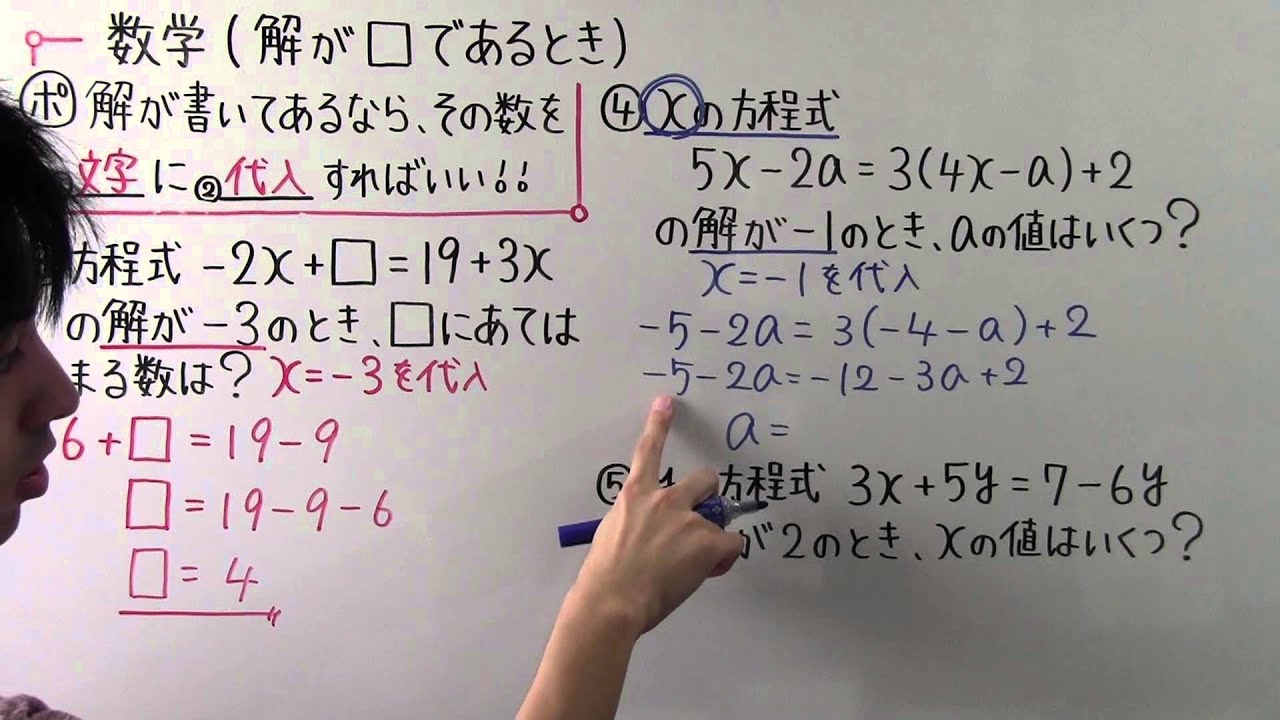 数学(解が□であるとき)
ポ 解が書いてあるなら、その数を
文字に②代入すればいい!!
方程式 -2x+□=19+3x
の解が-3のとき、□にあては
まる数は? x=-3を代入
6+□=19-9
□=19-9-6
□=4
④xの方程式
5x-2a=3(4x-a)+2
の解が-1のとき、aの値はいくつ?
x=-1を代入
-5-2a=3(-4-a)+2
-5-2a=-12-3a+2
a=
⑤ 方程式 3x+5y=7-6y
が2のとき、xの値はいくつ?